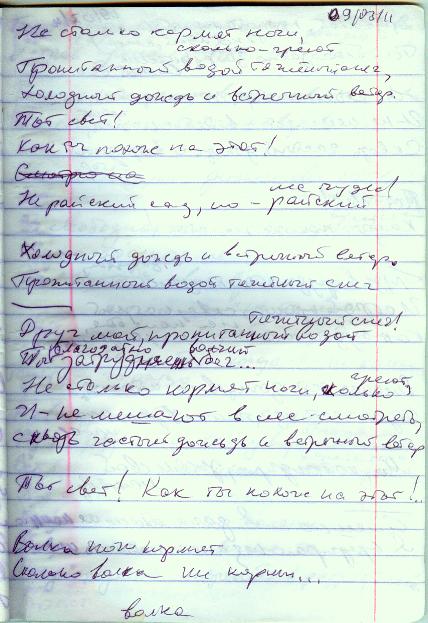 09/03/11
Не столко кормят ноги,
сколько - греют
Пропитанный водой тяжёлый снег,
Холодный дождь и встречный ветер.
Тот свет!
Как ты похож на этот!
Смотрю на
Не райский сад, но -
лес чудес!
райский
Холодный дождь и встречный ветер.
Пропитанный водой тяжёлый снег
тяжёлый снег!
Друг мой, пропитанный водой
благодатно волчий
Ты затрудняешь бег...
Не столько кормят ноги, сколько греют,
И - не мешают в лес смотреть,
сквозь частый дождь и встречный ветер
Тот свет! Как ты похож на этот!..
Волка ноги кормят
Сколько волка ни корми...
волка